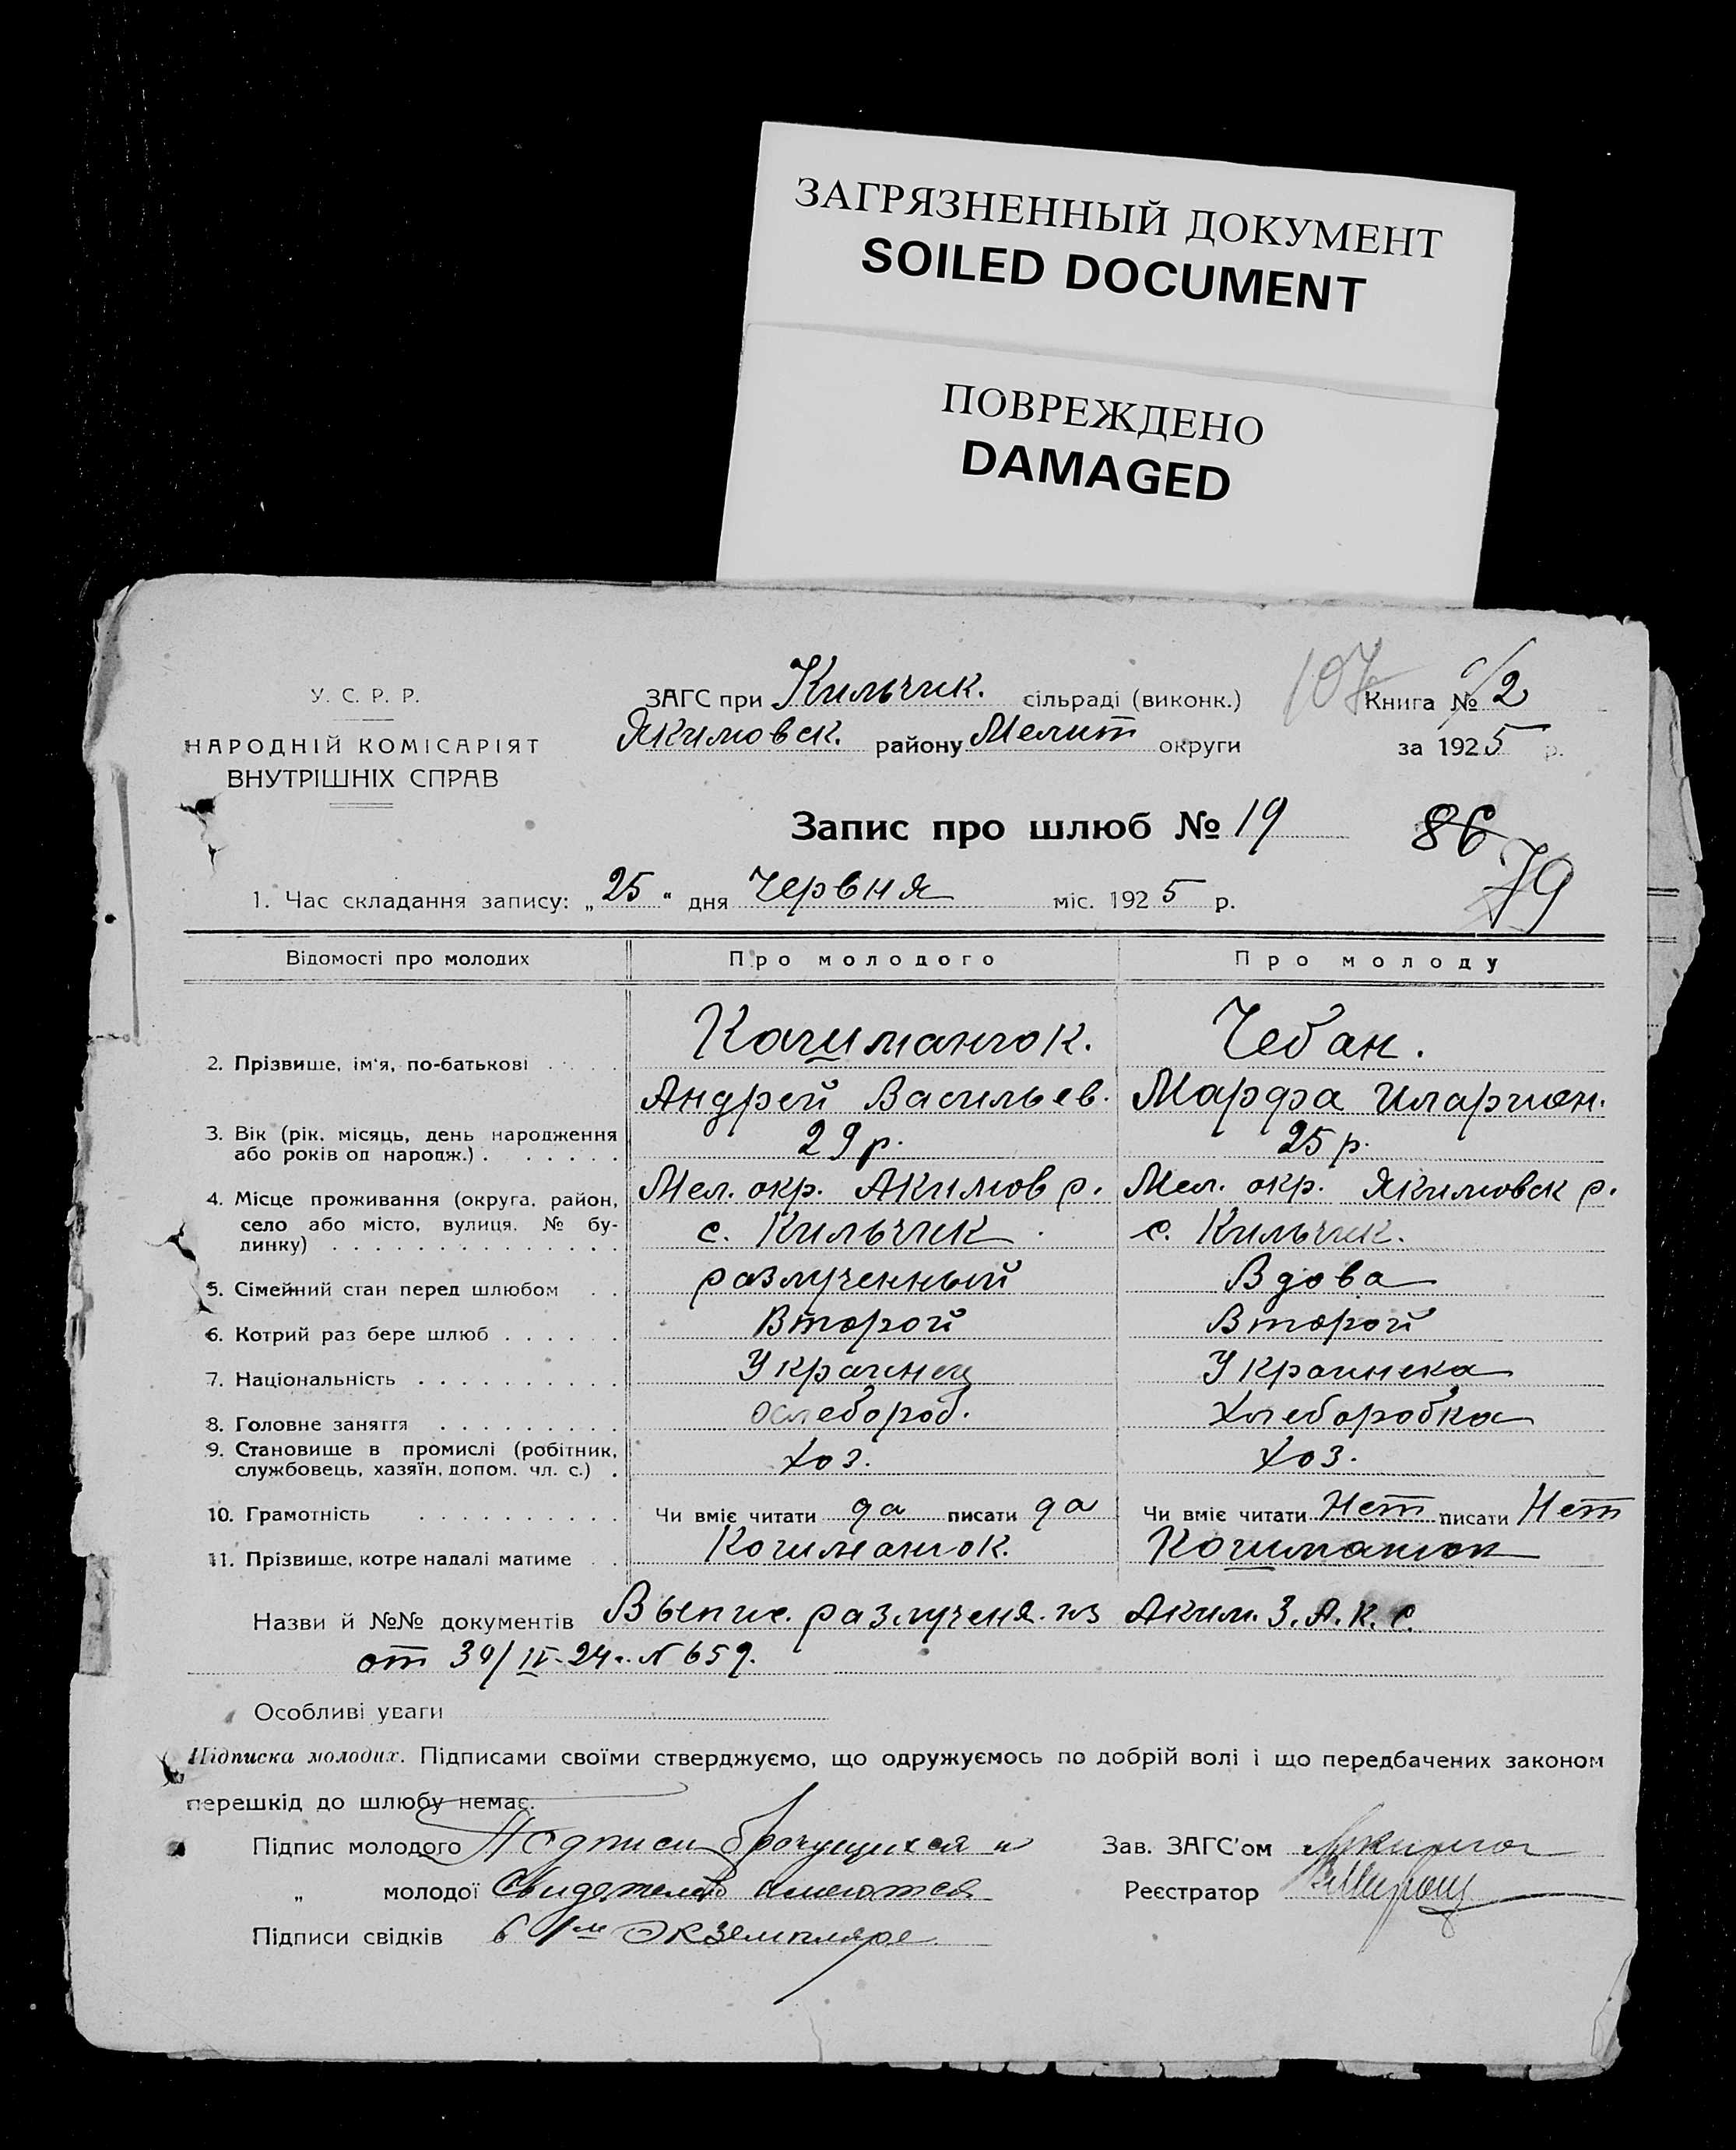 ЗАГРЯЗНЕННЫЙ ДОКУМЕНТ
SOILED DOCUMENT
ПОВРЕЖДЕНО
DAMAGED
У. С. Р. Р.
НАРОДНІЙ КОМІСАРІЯТ
ВНУТРІШНІХ СПРАВ
ЗАГС при Кильчик. сільраді (виконк.)
Якимовск. району Мелит округи
107
Книга № 2
за 1925 р.
Запис про шлюб № 19
86
79
1. Час складання запису: „25" дня Червня міс. 1925 р.
Відомості про молодих Про молодого Про молоду
2. Прізвище, ім'я, по-батькові Качиманюк. Чебан.
Андрей Васильев. Марфа Иларион.
3. Вік (рік, місяць, день народження або років од народж.) 29 р. 25 р.
4. Місце проживання (округа, район, Мел. окр. Акимов р. Мел. окр. Якимовск р.
село або місто, вулиця, № бу- с. Кильчик с. Кильчик.
динку)
5. Сімейний стан перед шлюбом разлученный Вдова
6. Котрий раз бере шлюб Второй Второй
7. Національність Украинец Украинска
8. Головне заняття хлебороб. хлеборобка
9. Становище в промислі (робітник, службовець, хазяїн, допом. чл. с.) хоз. хоз.
10. Грамотність Чи вміє читати да писати да Чи вміє читати Нет писати Нет
11. Прізвище, котре надалі матиме Кочиманюк. Кочиманюк
Назви й №№ документів Выпис. разлученя. из Аким. З. А. К. С.
от 30/IV-24. N 659.
Особливі уваги
Підписка молодих. Підписами своїми стверджуємо, що одружуємось по добрій волі і що передбачених законом
перешкід до шлюбу немає.
Підпис молодого Подписи брачущихся и Зав. ЗАГС'ом
„ молодої Свидетелей имеются Реєстратор
Підписи свідків в 1м экземпляре